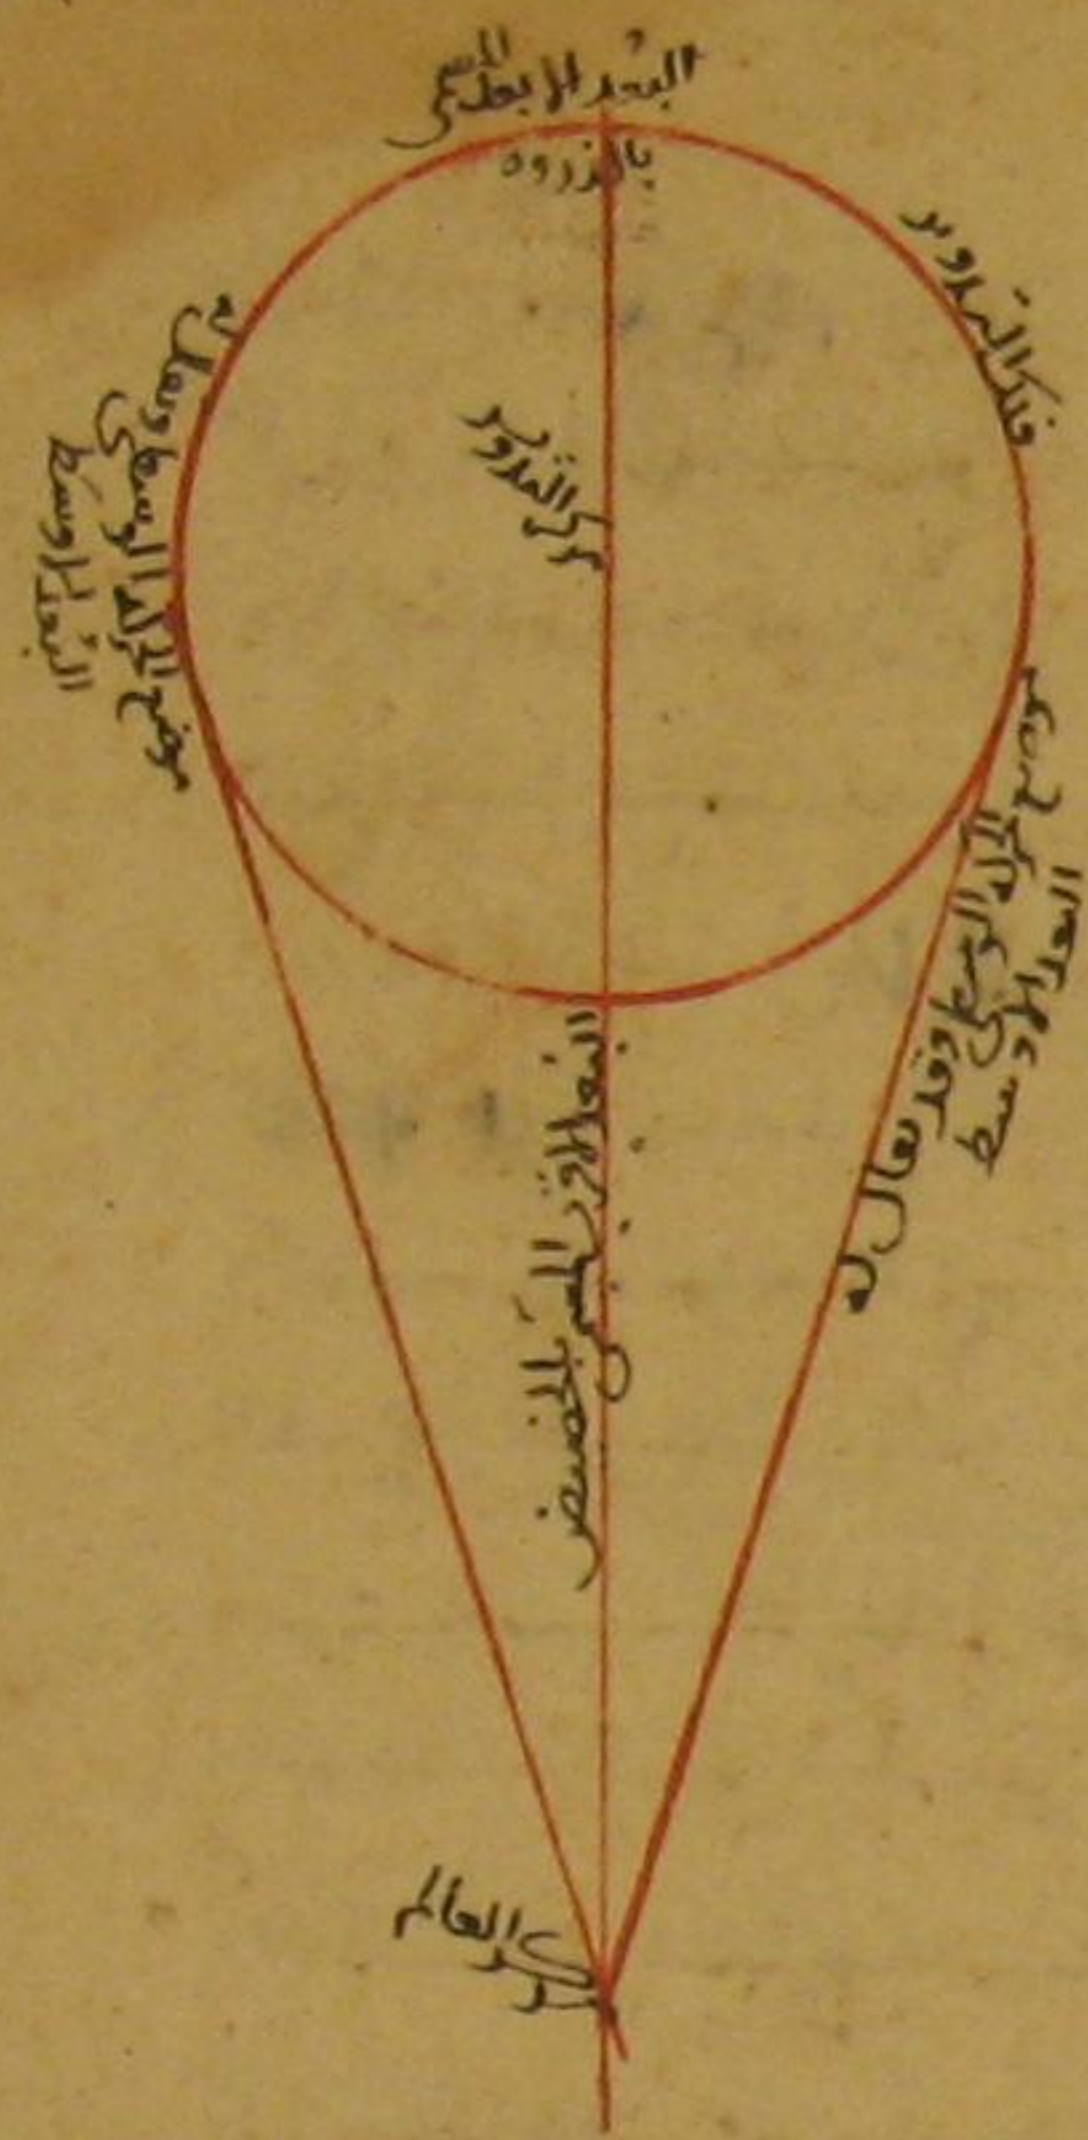 البُعد الابعد المسمى
بالذروه
فلك التدوير
مركز التدوير
موضع الحركة الوسطى ويقال له
البُعد الاوسط
موضع
الحركة الوسطى وقد يقال له
البعد الاوسط
البُعد الاقرب المسمى بالحضيض
مركز العالم